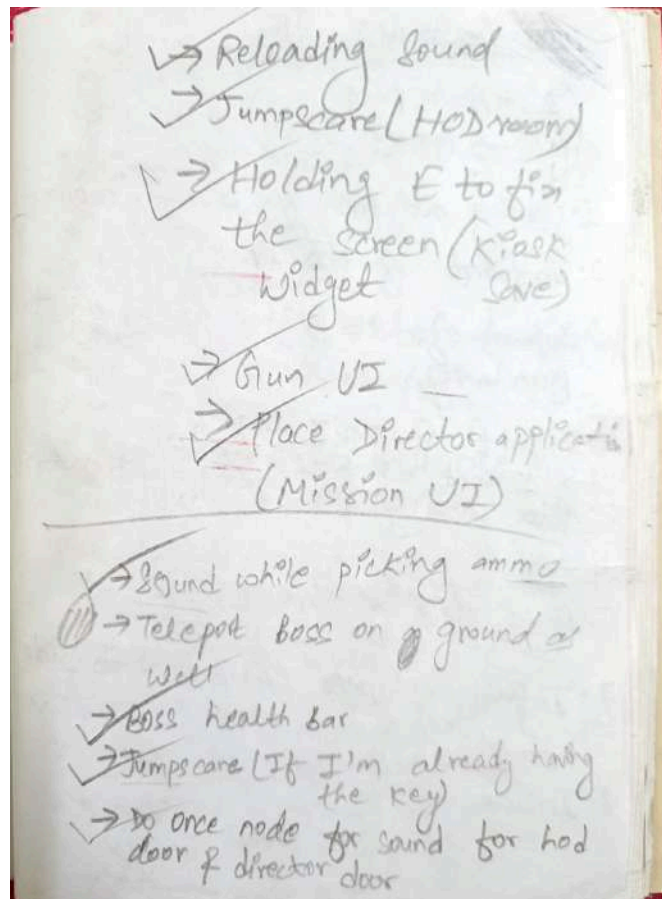 → Reloading Sound
→ Jumpscare (HOD room)
→ Holding E to fix
the screen (Kiosk
Widget Save)
→ Gun UI
→ Place Director applicatio
(Mission UI)
→ Sound while picking ammo
→ Teleport Boss on ground as
well
→ Boss health bar
→ Jumpscare (If I'm already having
the key)
→ Do once node for sound for hod
door & director door